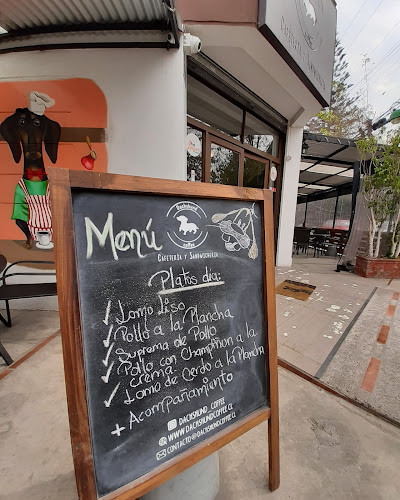 Menú
Dachshund
coffee
CAFETERÍA Y SANDWICHERÍA
Platos día:
✓ Lomo Liso
✓ Pollo a la Plancha
✓ Suprema de Pollo
✓ Pollo con Champiñon a la
crema.
✓ Lomo de Cerdo a la Plancha
+ Acompañamiento
DACHSHUND_COFFEE
WWW.DACHSHUNDCOFFEE.CL
CONTACTO@DACHSHUNDCOFFEE.CL